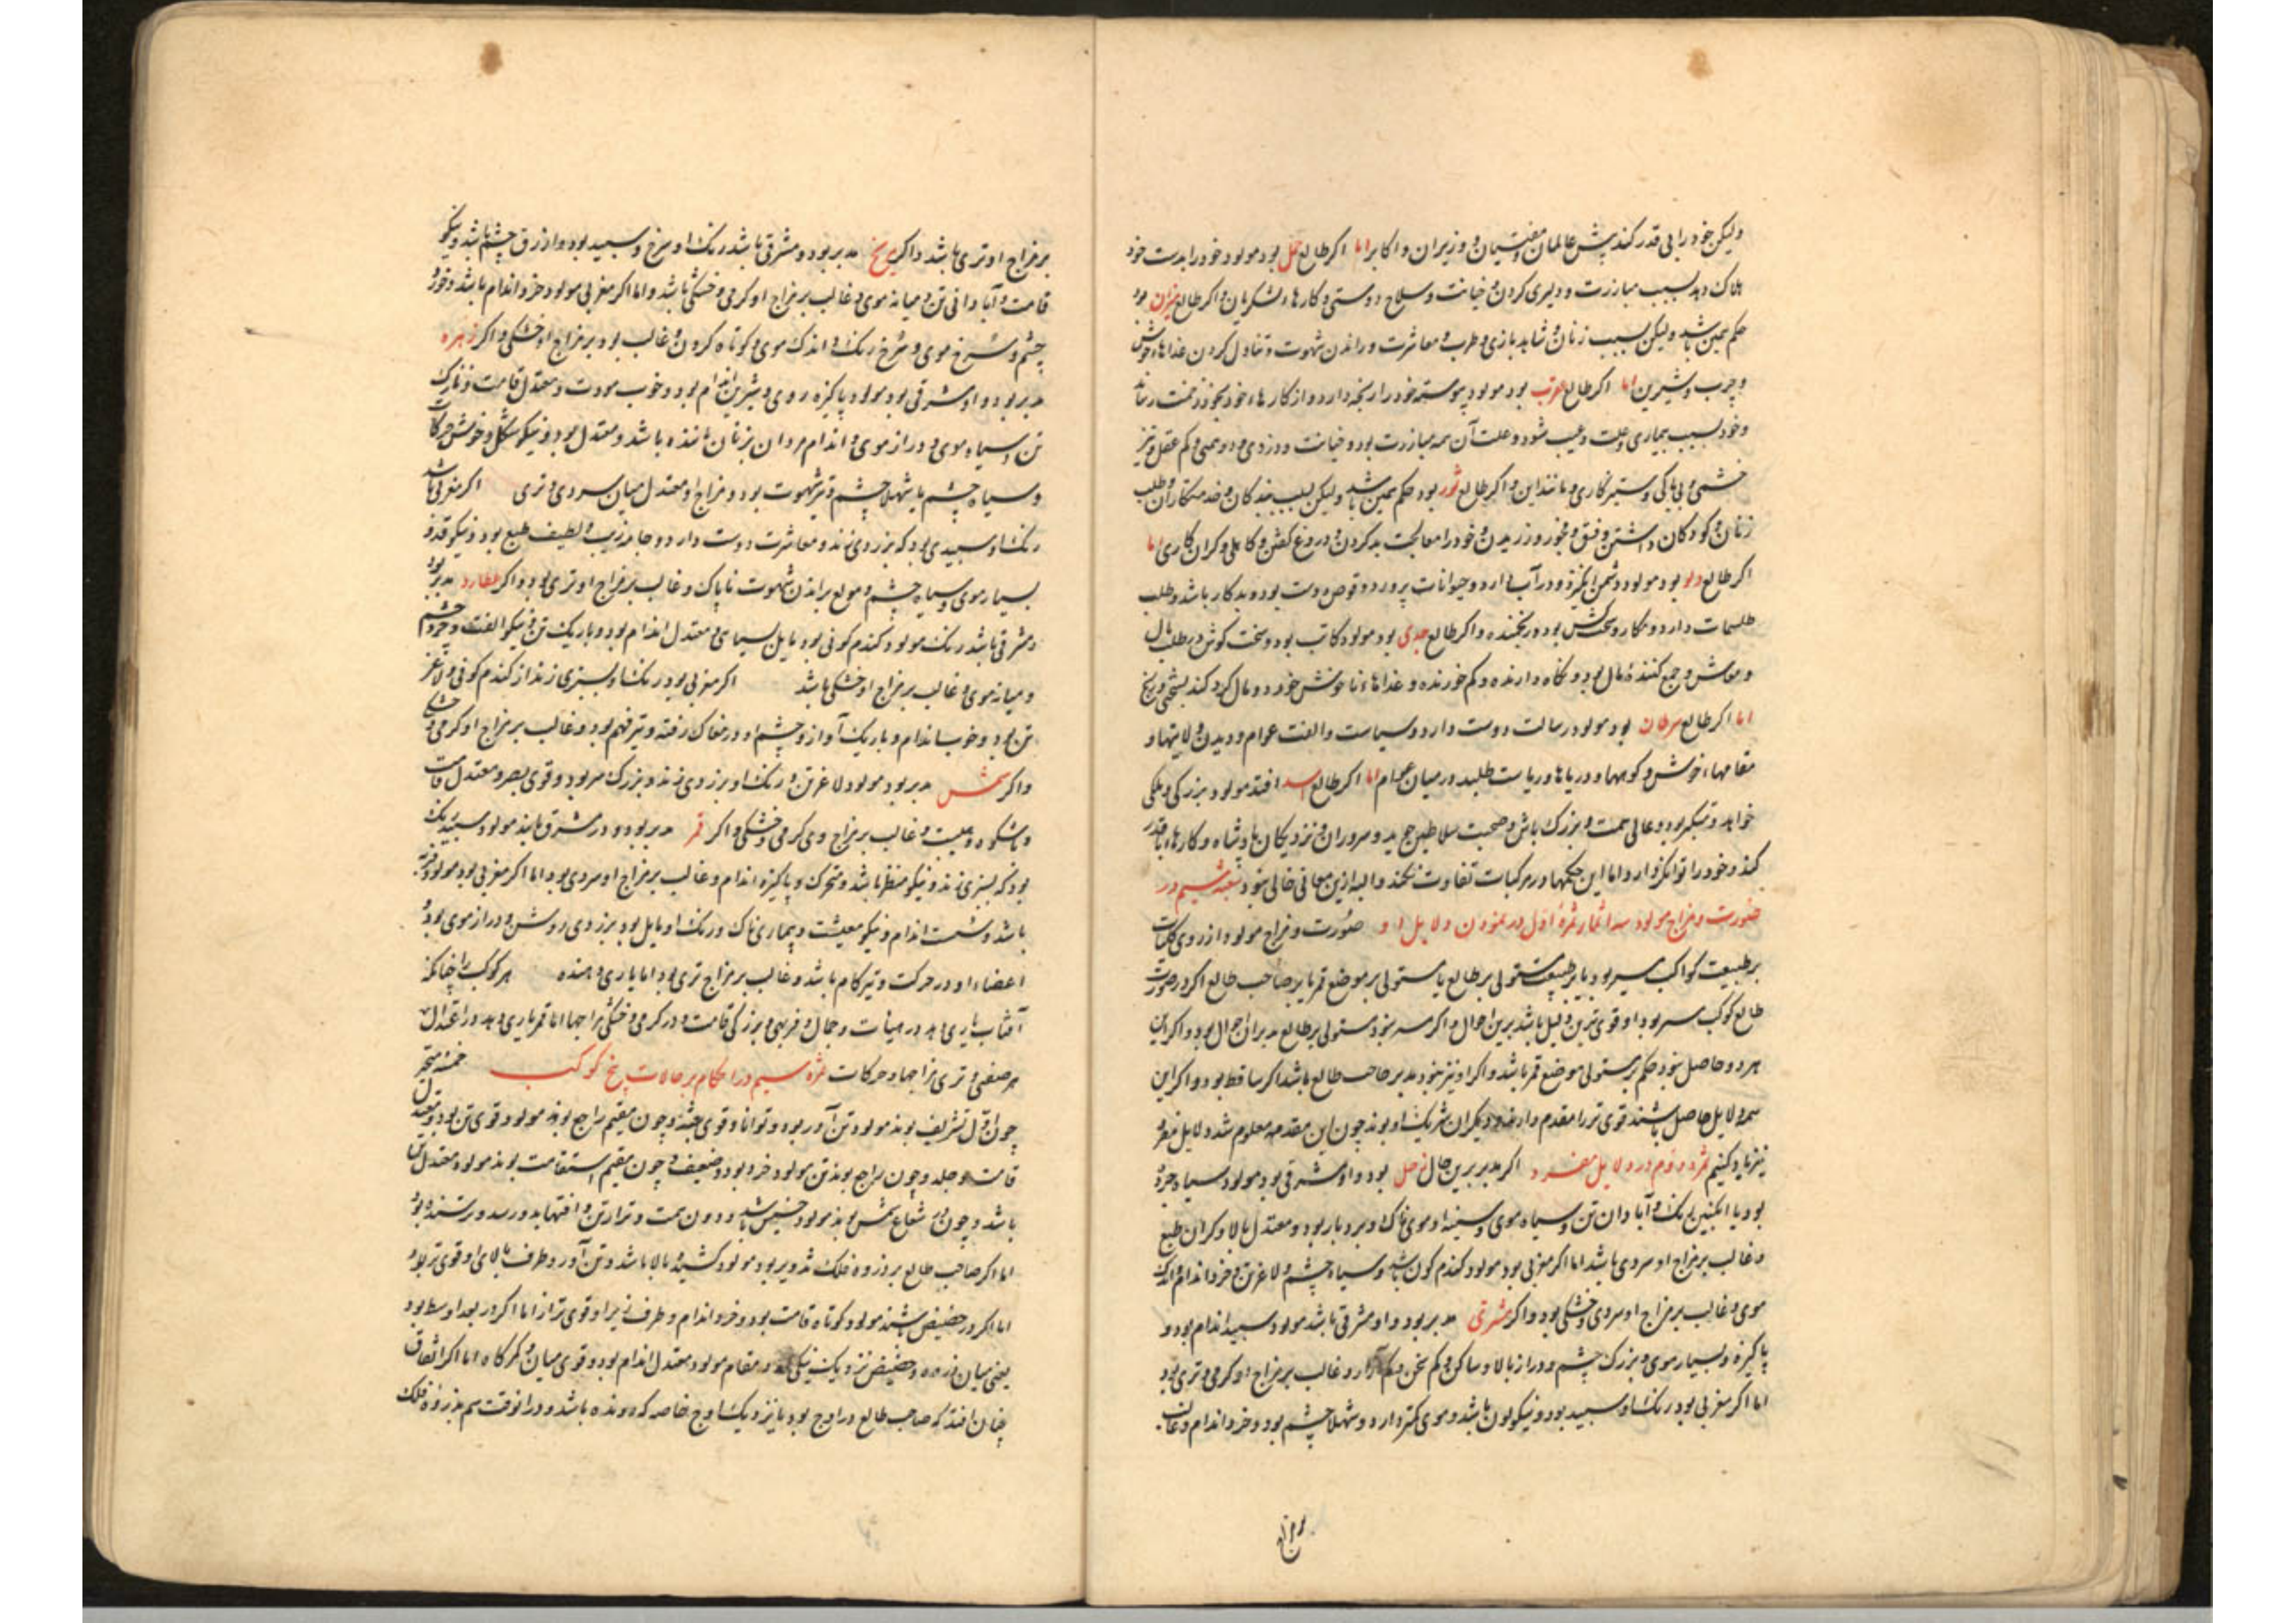 ولیکن خود را بی قدر کند پیش عالمان و مفتیان و وزیران و اکابر اما اکر طالع حمل بود مولود خود را بدست خود
هلاک دهد بسبب مبارزت و دلیری کردن و خیانت و سلاح دوستی و کارهاء لشکریان و اکر طالع میزان بود
حکم همین باشد ولیکن بسبب زنان و شاهد بازی و طرب و معاشرت و راندن شهوت و تناول کردن غذاهاء خوش
و چرب و شیرین اما اکر طالع عقرب بود مولود پیوسته خود را رنجه دارد و از کارهاء خود بخود زحمت رساند
و خود بسبب بیماری و علت و عیب شود و علت آن همه مبارزت بود و خیانت و دزدی و دشمنی و کم عقلی و تیز
خشمی و بی باکی و ستیزکاری و مانند این و اکر طالع ثور بود حکم همین باشد ولیکن بسبب بندکان و خدمتکاران و طلب
زنان و کودکان داشتن و فسق و فجور ورزیدن و خود را معالجت بد کردن و دروغ کفتن و کاهلی و کران کاری اما
اکر طالع دلو بود مولود دشمن انکیزد و در آب و حیوانات پرورد و قوص دوست بود و بدکار باشد و طلب
طلسمات دارد و مکار و سخت کش بود و رنجنده و اکر طالع جدی بود مولود کاتب بود و سخت کوش در طلب مال
و موش و جمع کنندۀ مال بود و نکاه دارنده و کم خورنده و غذاهاء ناخوش خورد و مال کرد کند بسختی و رنج
اما اکر طالع سرطان بود مولود رسالت دوست دارد و سیاست و الفت عوام و دیدن ولایتها و
مقامهاء خوش و کوهها و دریاها و ریاست طلبد در میان عوام اما اکر طالع اسد افتد مولود بزرکی و ملکی
خواهد و متکبر بود و عالی همت و بزرک باش و صحبت سلاطین جوید و سروران و نزدیکان پادشاه و کارهاء با قدر
کند و خود را توانکر دارد و اما این حکمها در مرکبات تفاوت نکند و البه ازین معانی خالی نبود شعبه ششم در
صورت و مزاج مولود سه اثمار ثمرۀ اول در نمودن دلایل او صورت و مزاج مولود از روی کلیات
بر طبیعت کواکب سیر بود یا بر طبیعت مستولی بر طالع یا مستولی بر موضع قمر یا بر صاحب طالع اکر در صورت
طالع کوکب سر بود او قوی ترین دلیل باشد برین احوال و اکر سر نبود مستولی بر طالع مدبر این احوال بود و اکر این
هر دو حاصل نبود حکم بر مستولی موضع قمر باشد و اکر او نیز نبود مدبر صاحب طالع باشد اکر ساقط بود و اکر این
همه دلایل حاصل باشند قوی تر را مقدم دارند و دیکران شریک او بوند چون این مقدمه معلوم شد دلایل مفرد
نیز یاد کنیم ثمرۀ دوم در دلایل مفرد اکر مدبر برین حال زحل بود و او مشرقی بود مولود سیاه چرده
بود یا انکبین رنک و آبادان تن و سیاه موی و سینۀ او موی ناک و بردبار بود و معتدل بالا و کران طبع
و غالب بر مزاج او سردی باشد اما اکر مغربی بود مولود کندم کون باشد و سیاه چشم و لاغر تن و خرد اندام و اندک
موی و غالب بر مزاج او سردی و خشکی بود و اکر مشتری مدبر بود و او مشرقی باشد مولود سبید اندام بود و
پاکیزه و بسیار موی و بزرک چشم و دراز بالا و ساکن و کم سخن و کم آزار و غالب بر مزاج او کرمی و تری بود
اما اکر مغربی بود رنک او سبید بود و نیکو لون باشد و موی کمتر دارد و شهلا چشم بود و خرد اندام و غالب
بر مزاج او تری باشد و اکر مریخ مدبر بود و مشرقی باشد رنک او سرخ و سبید بود و ازرق چشم باشد و نیکو
قامت و آبادانی تن و میانه موی و غالب بر مزاج او کرمی و خشکی باشد و اما اکر مغربی مولود خرد اندام باشد و خرد
چشم و سرخ موی و سرخ رنک و اندک موی و کوتاه کردن و غالب بود بر مزاج او خشکی و اکر زهره
مدبر بود و او مشرقی بود مولود پاکیزه روی و شیرین اندام بود و خوب صورت و معتدل قامت و نازک
تن و سیاه موی و دراز موی و اندام مردان بزنان ماننده باشد و معتدل بود و نیکو شکل و خوش حرکات
و سیاه چشم یا شهلا چشم و تیز شهوت بود و مزاج او معتدل میان سردی و تری اکر مغربی باشد
رنک او سبیدی بود که بزردی زند و معاشرت دوست دارد و جامه زیب و لطیف طبع بود و نیکو قد و
بسیار موی و سیاه چشم و مولع براندن شهوت ناپاک و غالب بر مزاج او تری بود و اکر عطارد مدبر بود
و مشرقی باشد رنک مولود کندم کونی بود مایل بسیاهی و معتدل اندام بود و باریک تن و نیکو الفت و خرد چشم
و میانه موی و غالب بر مزاج او خشکی باشد اکر مغربی بود رنک او بسبزی زند از کندم کونی و لاغر
تن بود و خوب اندام و باریک آواز و چشم او در مغاک رفته و تیز فهم بود و غالب بر مزاج او کرمی و خشکی
و اکر شمس مدبر بود مولود لاغر تن و رنک او بزردی زند و بزرک سر بود و قوی بصر و معتدل قامت
و باشکوه و هیبت و غالب بر مزاج وی کرمی و خشکی و اکر قمر مدبر بود و در مشرق باشد مولود سبید رنک
بود که بسبزی زند و نیکو منظر باشد و متحرک و پاکیزه اندام و غالب بر مزاج او سردی بود اما اکر مغربی بود مولود فربه
باشد و سست اندام و نیکو معیشت و بیماری ناک و رنک او مایل بود بزردی روشن و دراز موی بود و
اعضاء او در حرکت و تیزکام باشد و غالب بر مزاج تری بود اما یاری دهنده هر کوکب را چنانکه
آفتاب یاری دهد در هیات و جمال و فربهی و بزرکی قامت و در کرمی و خشکی مزاجها اما قمر یاری دهد در اعتدال
هر صنفی و تری مزاجها و حرکات ثمرۀ سیم در احکام بر حالات پنج کوکب خمسه متحیره
چون اول تشریف بوند مولود تن آور بود و توانا و قوی جثه و چون مقیم راجع بوند مولود قوی تن بود و معتدل
قامت و جلد و چون راجع بوند تن مولود خرد بود و ضعیف و چون مقیم استقامت بوند مولود معتدل تن
باشد و چون در شعاع شمس بوند مولود خسیس باشد و دون همت و نزار تن و آفتها بدو رسد و رستنده بود
اما اکر صاحب طالع بر ذروه فلک تدویر بود مولود کشیده بالا باشد و تن آور و طرف بالای او قوی تر بود
اما اکر در حضیض باشند مولود کوتاه قامت بود و خرد اندام و طرف زیر او قوی تر از اما اکر در بعد اوسط بود
یعنی میان ذروه و حضیض نزدیک نیکی مقام مولود معتدل اندام بود و قوی میان و کمرکاه اما اکر اتفاق
چنان افتد که صاحب طالع در اوج بود یا نزدیک اوج خاصه که رونده باشد و در آنوقت هم بذروۀ فلک
بر مزاج